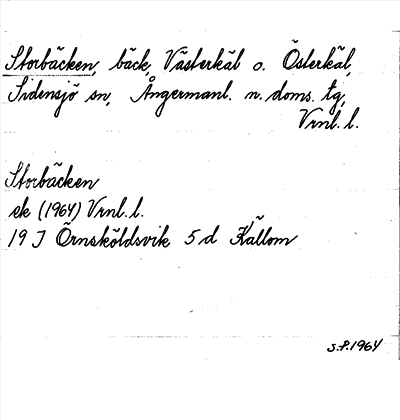 Storbäcken, bäck, Västerkäl o. Österkäl,
Sidensjö sn, Ångermanl. n. doms. tg,
Vrnl. l.
Storbäcken
ek (1964) Vrnl. l.
19 J Örnsköldsvik 5 d Källom
S.P. 1964